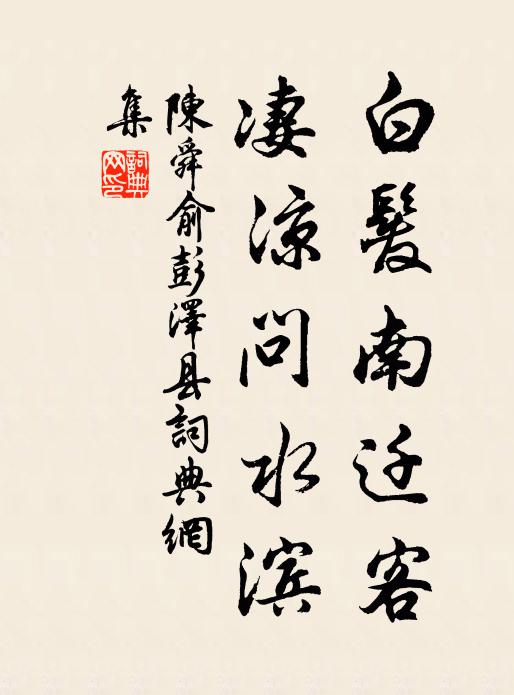 白髮南迁客
凄涼問水滨
陳舜俞彭澤县詞典網
集
詞典网印